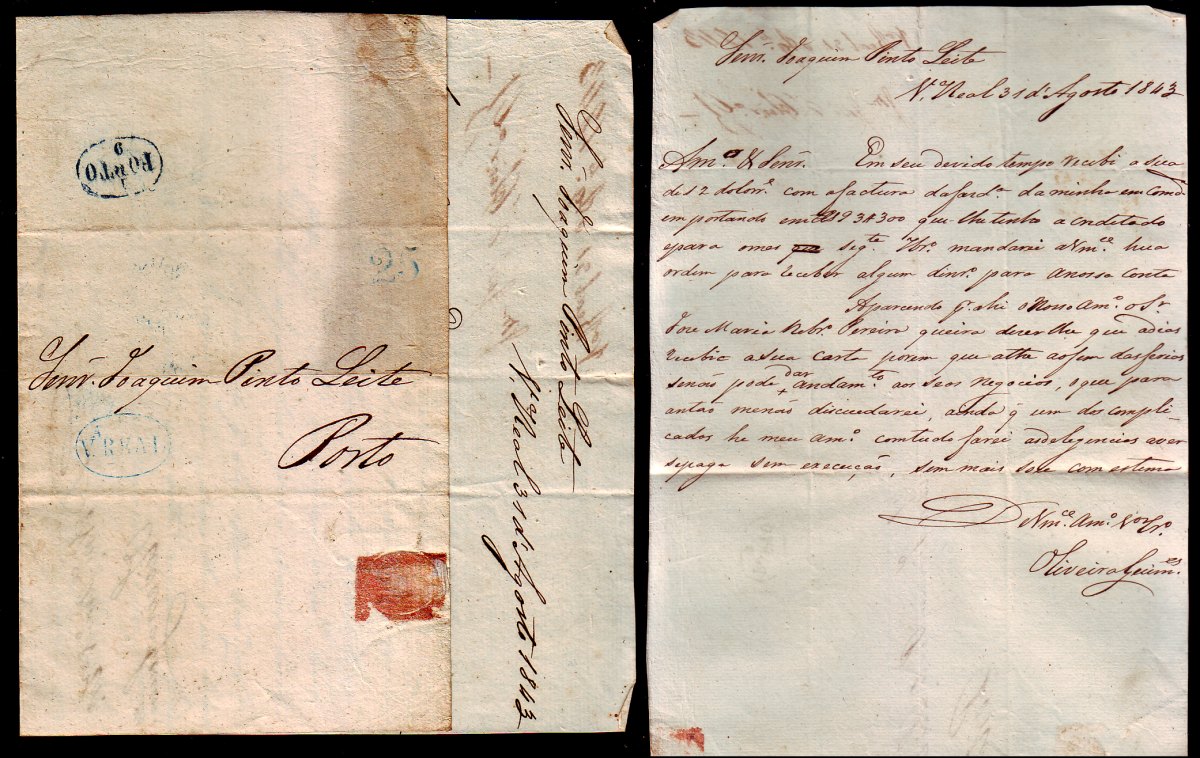 PORTO
25
Senr. Joaquim Pinto Leite
Porto
V. REAL
Senr. Joaquim Pinto Leite
Vª Real 31 d'Agosto 1843
Senr. Joaquim Pinto Leite
Vª Real 31 d'Agosto 1843
Amº & Senr. Em seu devido tempo recebi a sua
de 12 do Corr.e com a factura da fard.ª da minha em Comd
emportando em que lhe tinha a creditado
epara omes seg.te 7br.º mandarei a Vm.ce hua
ordem para receber algum dinr.º para anossa Conta
Aparcendo p.r ahi o Nosso Am.º o Sr
Joze Maria Rebr.º Pereira queira dizerlhe que adias
recebi asua carta porem que athe aofim dasferias
senão pode dar andam.to aos seos negocios, oque para
antão menãs discuidarei, ainda q um dos compli-
cados he meu am.º comtudo farei asdelegencias aver
sepaga sem execução, sem mais sou com estima
De Vm.ce Am.º
Oliveira Guim.es